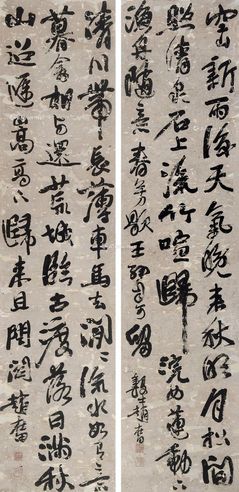 空山新雨後天氣晚来秋明月松間
照清泉石上流竹喧歸浣女蓮動下
漁舟隨意春芳歇王孫自可留
清川帶長薄車馬去閒〻流水如有意
暮禽相與還荒城臨古渡落日滿秋
山迢遞嵩高下歸来且閉關